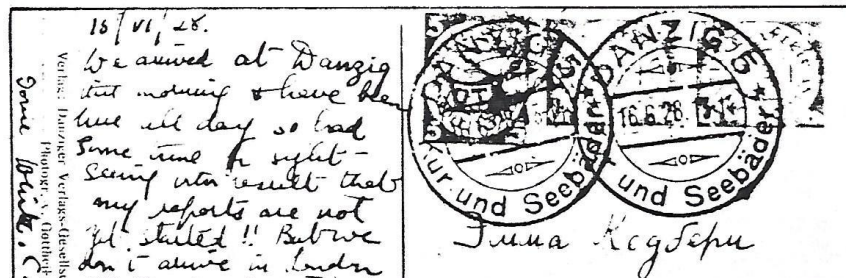 15/VI/28.
We arrived at Danzig
this morning & have been
here all day so had
some time for sight-
seeing with result that
my reports are not
yet started !! But we
don't arrive in London
Verlag: Danziger Verlags-Gesellsc
Photogr. A. Gotthei
DANZIG 5
Kur und Seebäder
DANZIG 5
16.6.28.
Kur und Seebäder
Эмма Кедбери